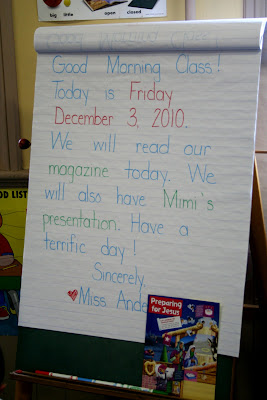 big little open closed
Good Morning Class!
Today is Friday
December 3, 2010.
We will read our
magazine today. We
will also have Mimi's
presentation. Have a
terrific day!
Sincerely,
Miss Ande
Preparing
for Jesus
OD LIST